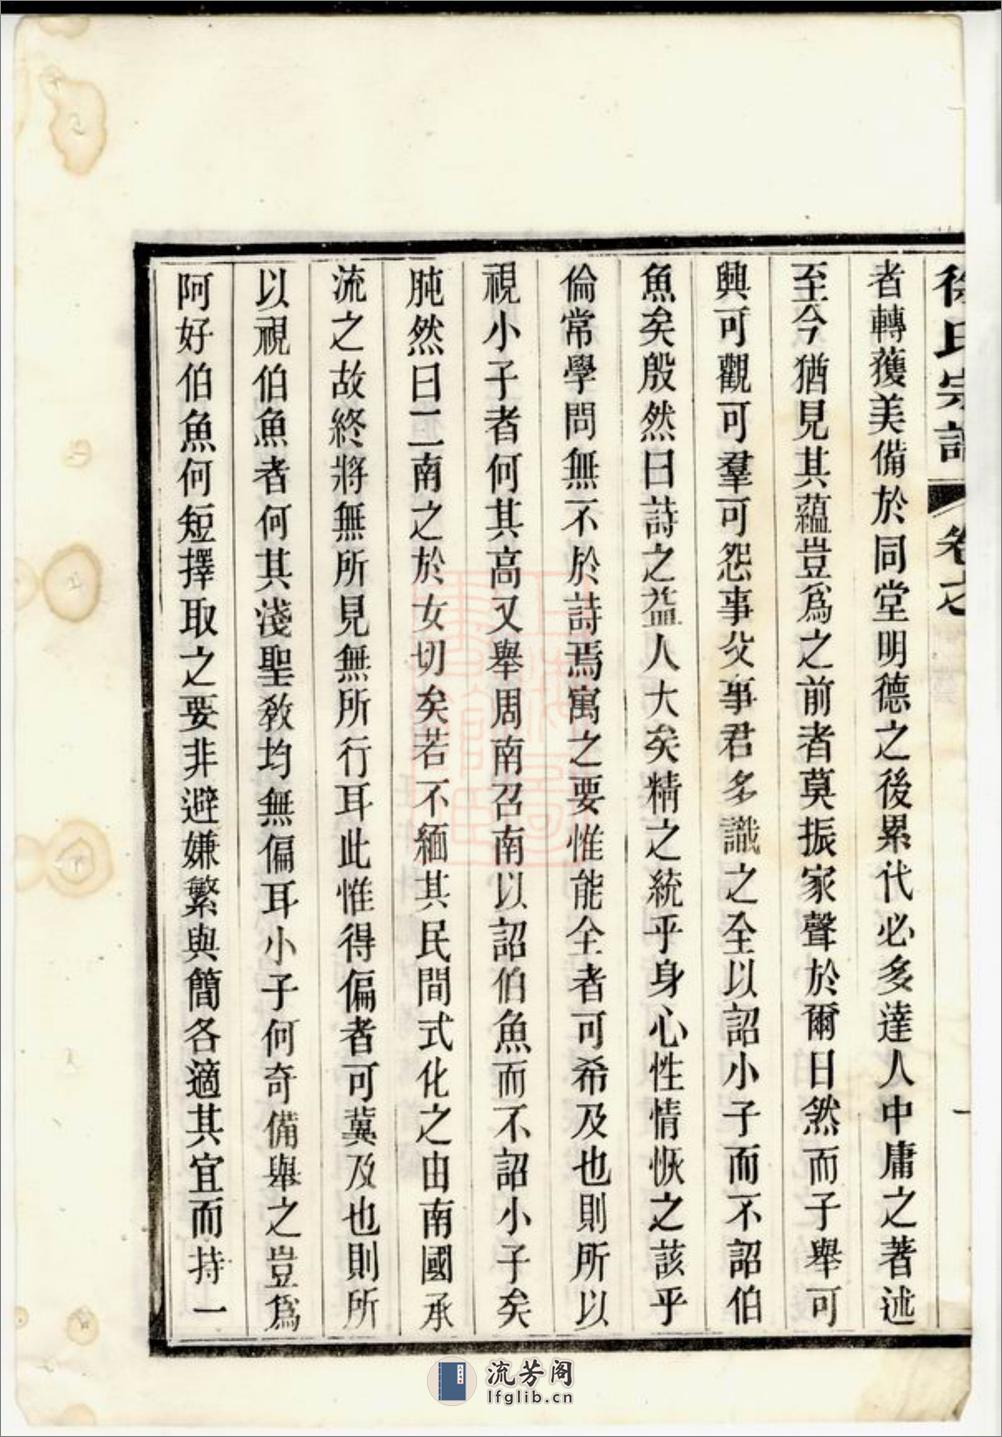 徐氏宗譜 卷之 一
者轉獲美備於同堂明德之後累代必多達人中庸之著述
至今猶見其蘊豈爲之前者莫振家聲於爾日然而子舉可
興可觀可羣可怨事父事君多識之全以詔小子而不詔伯
魚矣殷然曰詩之益人大矣精之統乎身心性情恢之該乎
倫常學問無不於詩焉寓之要惟能全者可希及也則所以
視小子者何其高又舉周南召南以詔伯魚而不詔小子矣
肫然曰二南之於女切矣若不緬其民間式化之由南國承
流之故終將無所見無所行耳此惟得偏者可冀及也則所
以視伯魚者何其淺聖敎均無偏耳小子何奇備舉之豈爲
阿好伯魚何短擇取之要非避嫌繁與簡各適其宜而持一
流芳阁
lfglib.cn